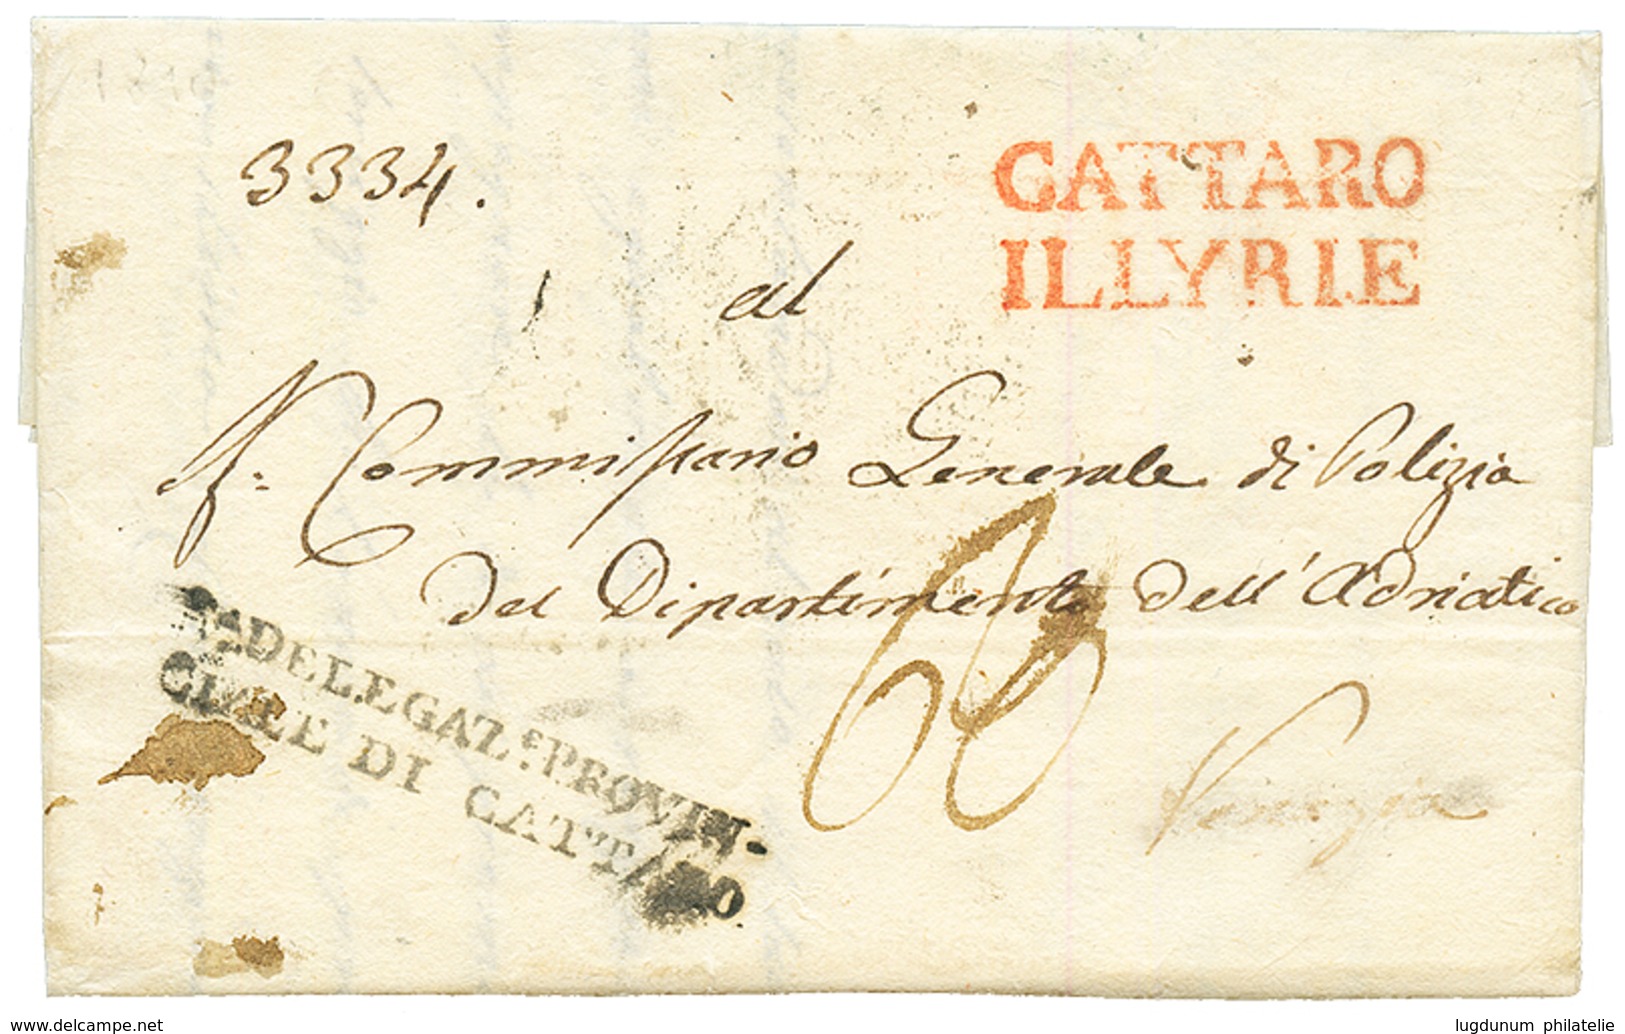 3334.
CATTARO
ILLYRIE
al
Commissario Generale di Polizia
del Dipartimento dell'Adriatico
Rª DELEGAZ.e PROVIN-
CIALE DI CATTARO
Venezia
www.delcampe.net
lugdunum philatelie